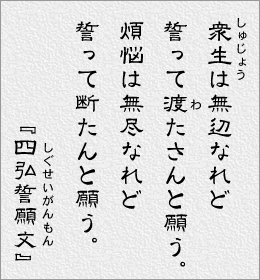 しゅじょう
衆生は無辺なれど
わ
誓って渡たさんと願う。
煩悩は無尽なれど
誓って断たんと願う。
しぐせいがんもん
『四弘誓願文』